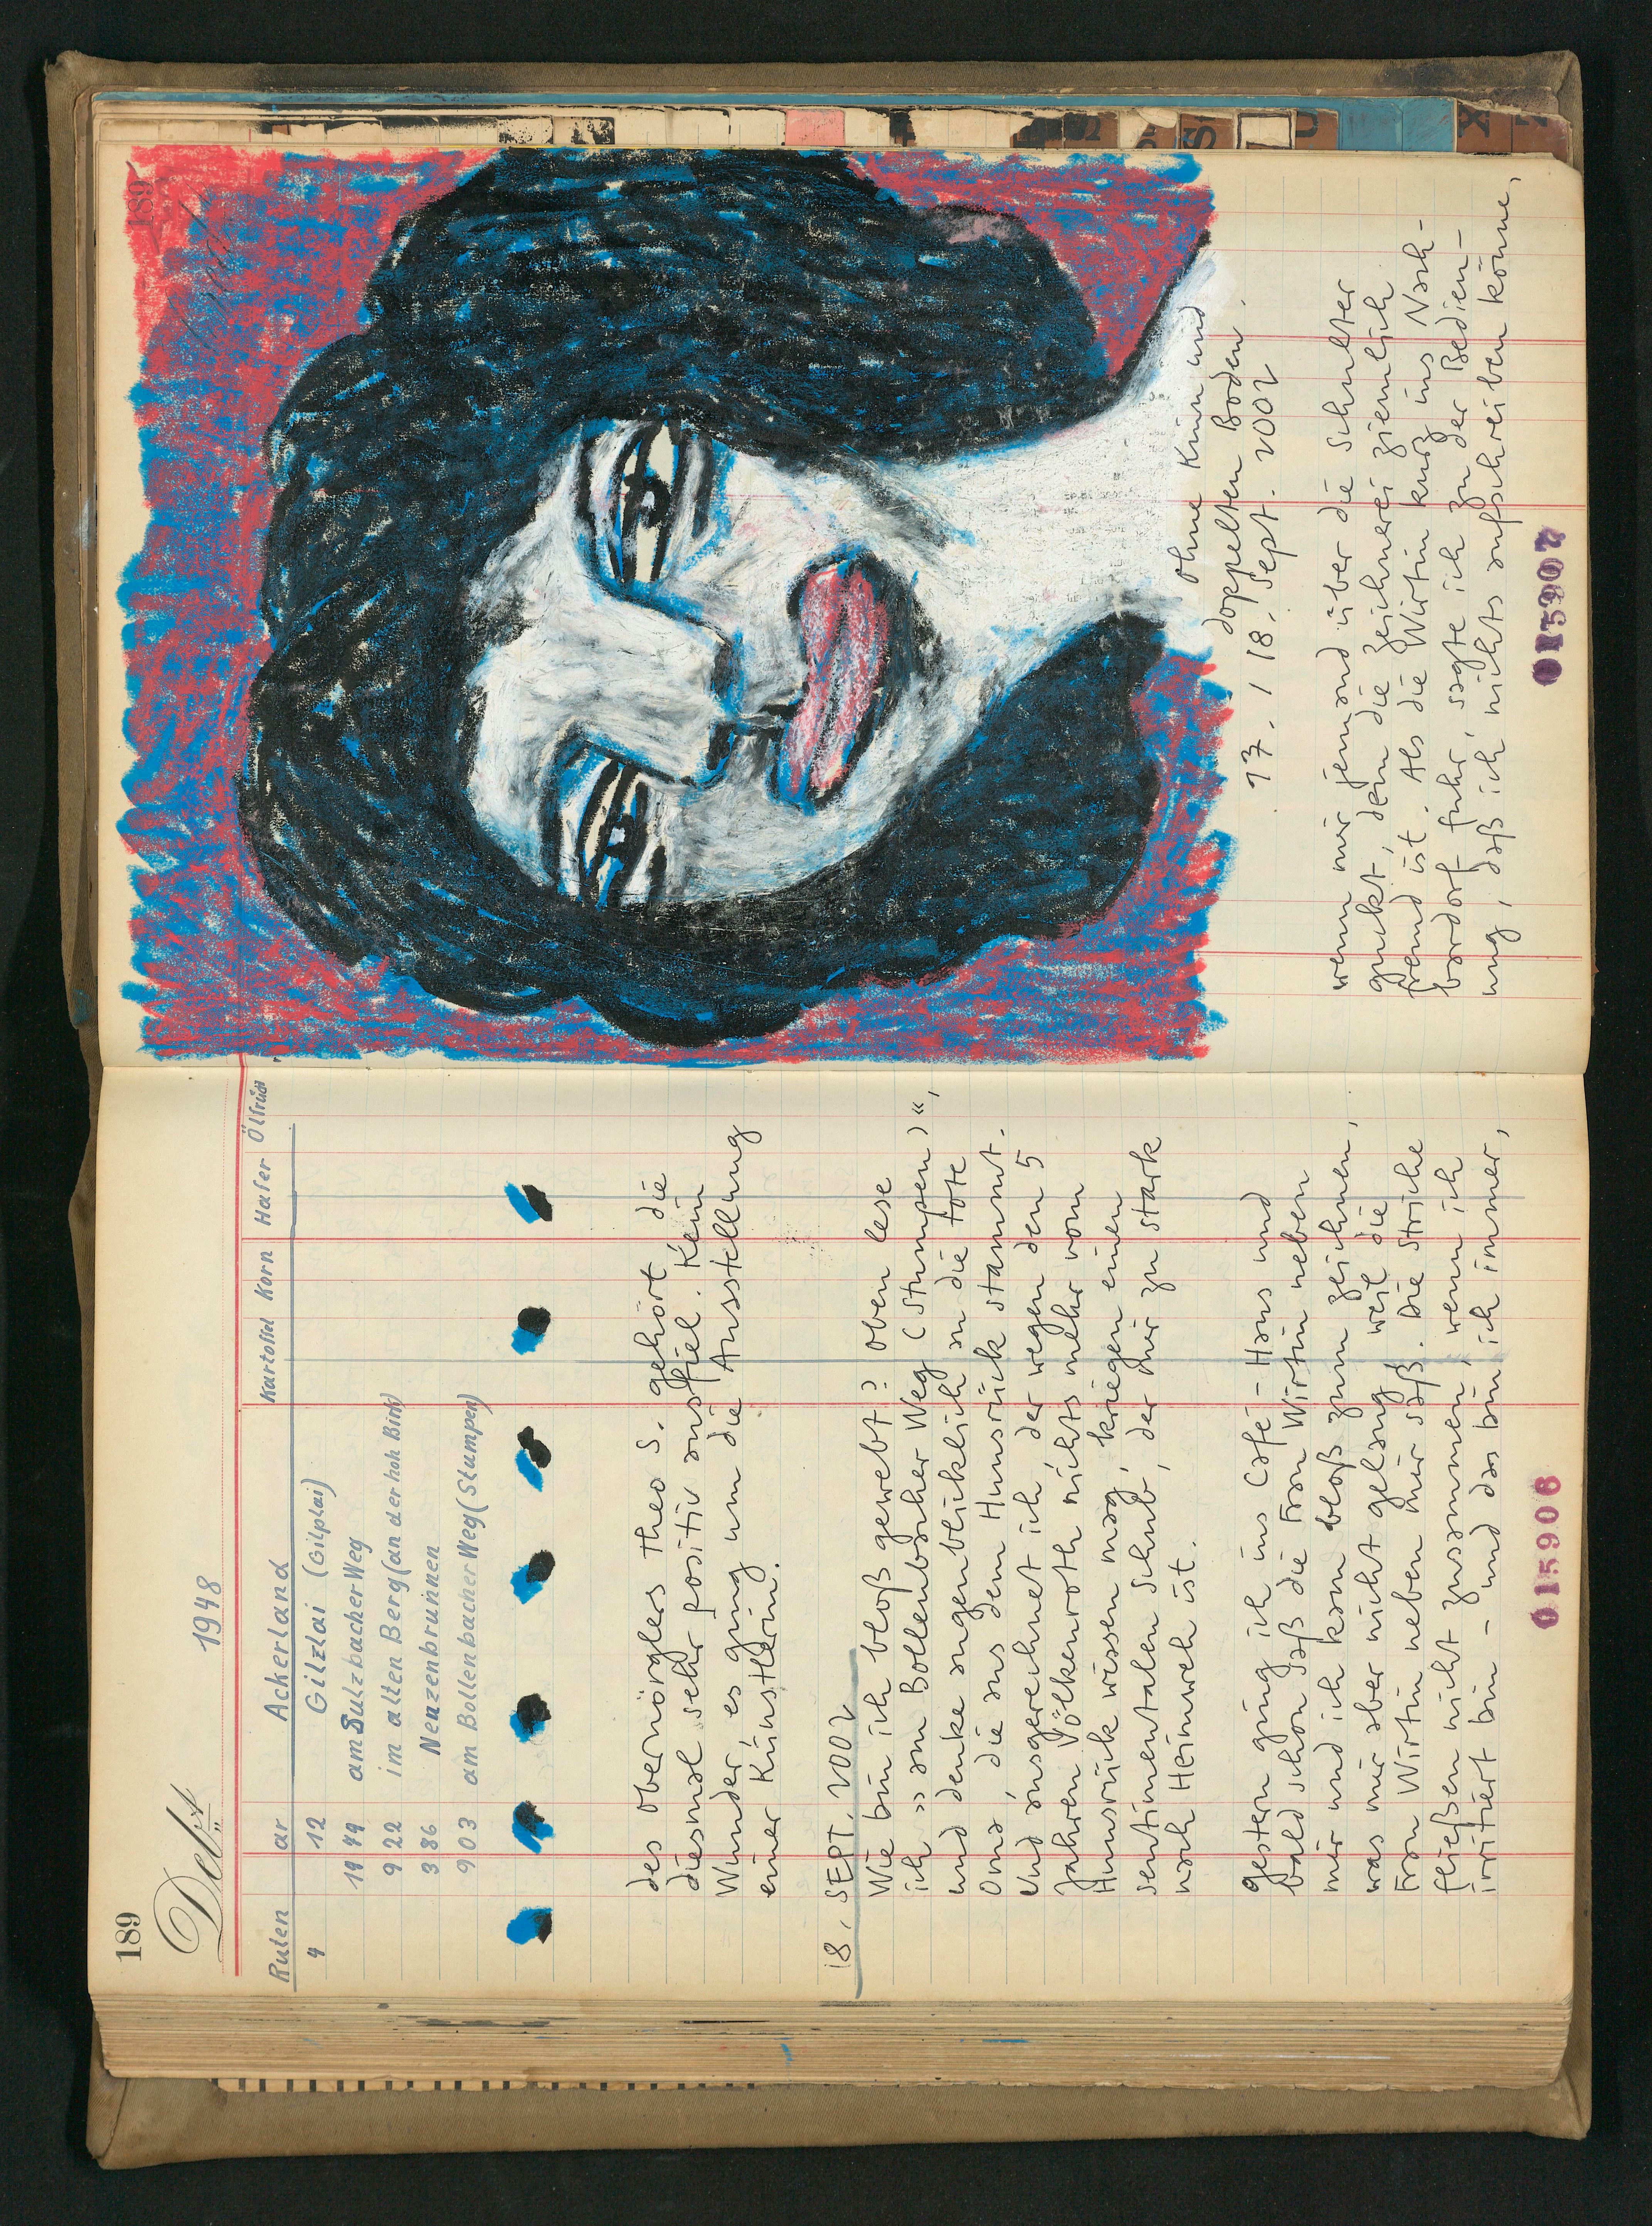 189
Debet
1948
Ruten ar Ackerland Kartoffel Korn Hafer Ölfrüch
4 12 Gilzlai (Gilplai)
19 49 am Sulzbacher Weg
9 22 im alten Berg (an der hoh Birk)
3 86 Neuzenbrunnen
9 03 am Bollenbacher Weg (Stumpen)
des Obernörglers Theo S. gehört die
diesmal sehr positiv ausfiel. Kein
Wunder, es ging um die Ausstellung
einer Künstlerin.
18. SEPT. 2002
Wie bin ich bloß gewebt? Oben lese
ich »am Bollenbacher Weg (Stumpen)«,
und denke augenblicklich an die tote
Oma, die aus dem Hunsrück stammt.
Und ausgerechnet ich, der wegen den 5
Jahren Völkenroth nichts mehr vom
Hunsrück wissen mag, kriegen einen
sentimentalen Schub, der mir zu stark
nach Heimweh ist.
Gestern ging ich ins Café-Haus und
bald schon saß die Frau Wirtin neben
mir und ich kam bloß zum zeichnen,
was mir aber nicht gelang weil die
Frau Wirtin neben mir saß. Die Striche
fließen nicht zusammen, wenn ich
irritiert bin – und das bin ich immer,
015906
189
ohne Kinn und
doppelten Boden.
17. / 18. Sept. 2002
wenn mir jemand über die Schulter
guckt, dem die Zeichnerei ziemlich
fremd ist. Als die Wirtin kurz ins Nach-
bardorf fuhr, sagte ich zu der Bedien-
ung, daß ich nichts aufschreiben könne,
015907